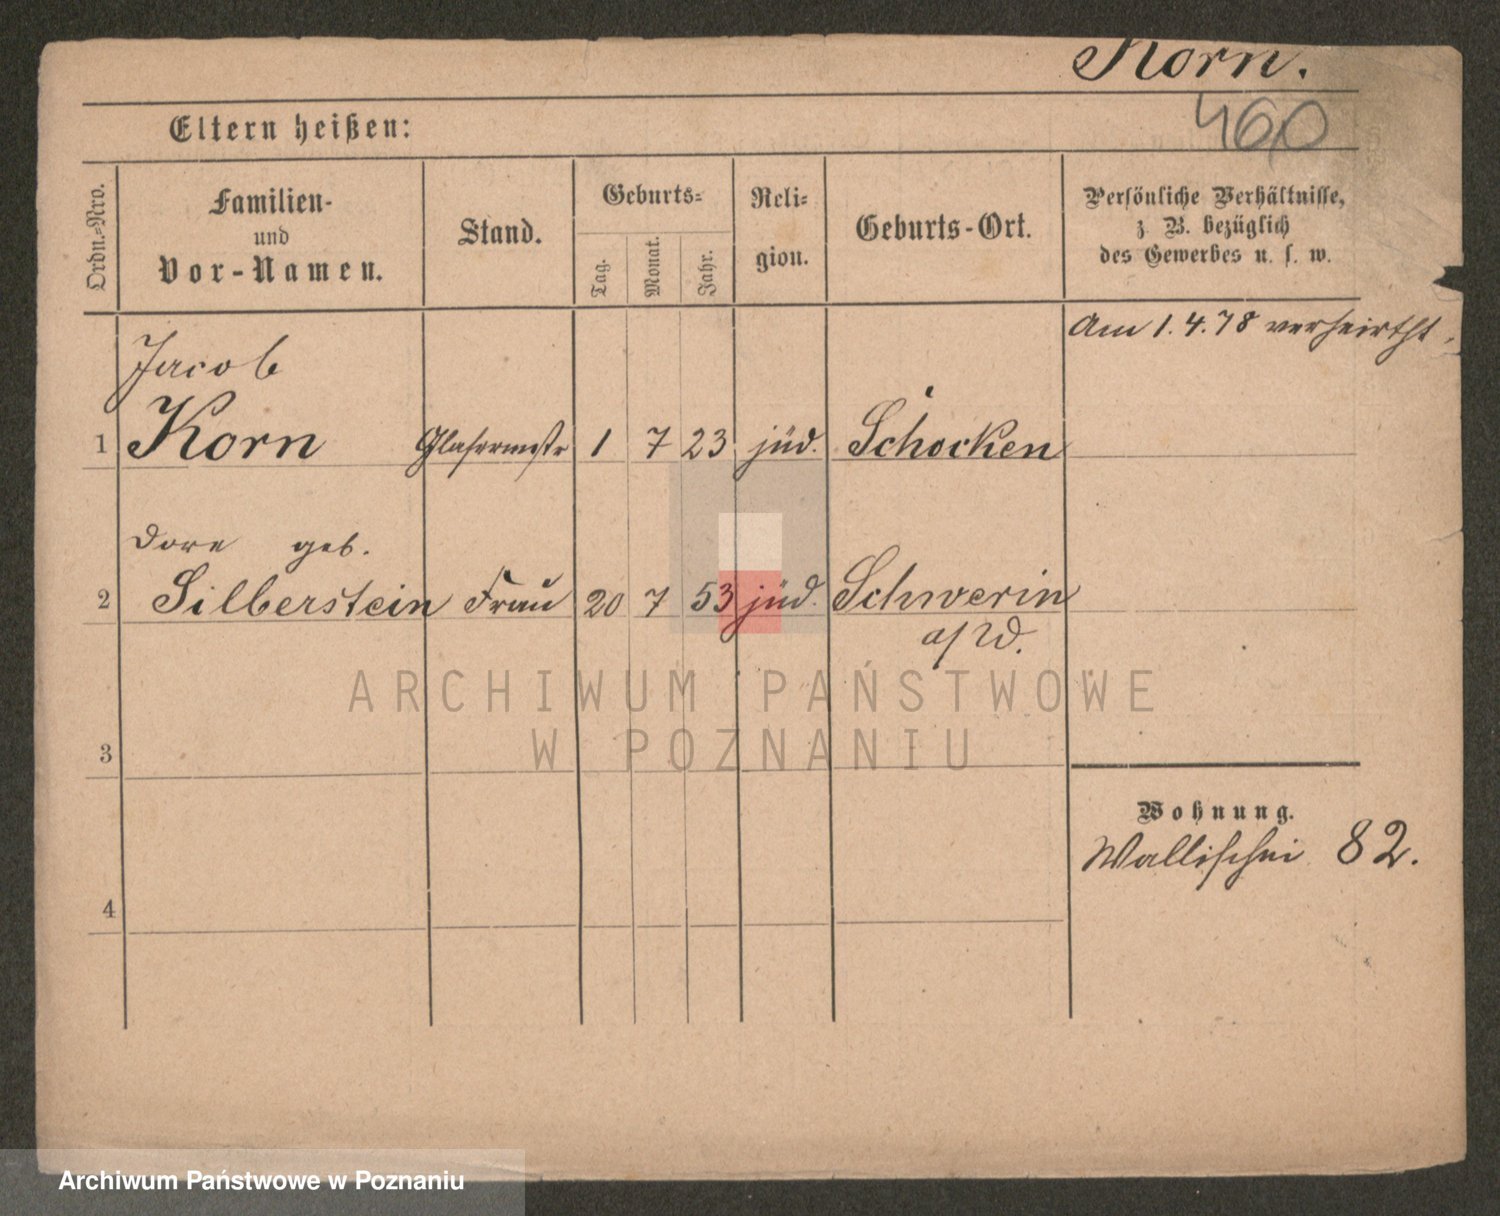 Korn.
460
Eltern heißen:
Ordn.-Nro.
Familien-
und
Vor-Namen.
Stand.
Geburts-
Tag.
Monat.
Jahr.
Reli-
gion.
Geburts-Ort.
Persönliche Verhältnisse,
z. B. bezüglich
des Gewerbes u. s. w.
Am 1.4.78 verheirtht.
Jacob
1 Korn Glasermstr 1 7 23 jüd. Schocken
Dore geb.
2 Silberstein Frau 20 7 53 jüd. Schwerin
a/W.
ARCHIWUM PAŃSTWOWE
W POZNANIU
3
Wohnung.
Wallischei 82.
4
Archiwum Państwowe w Poznaniu